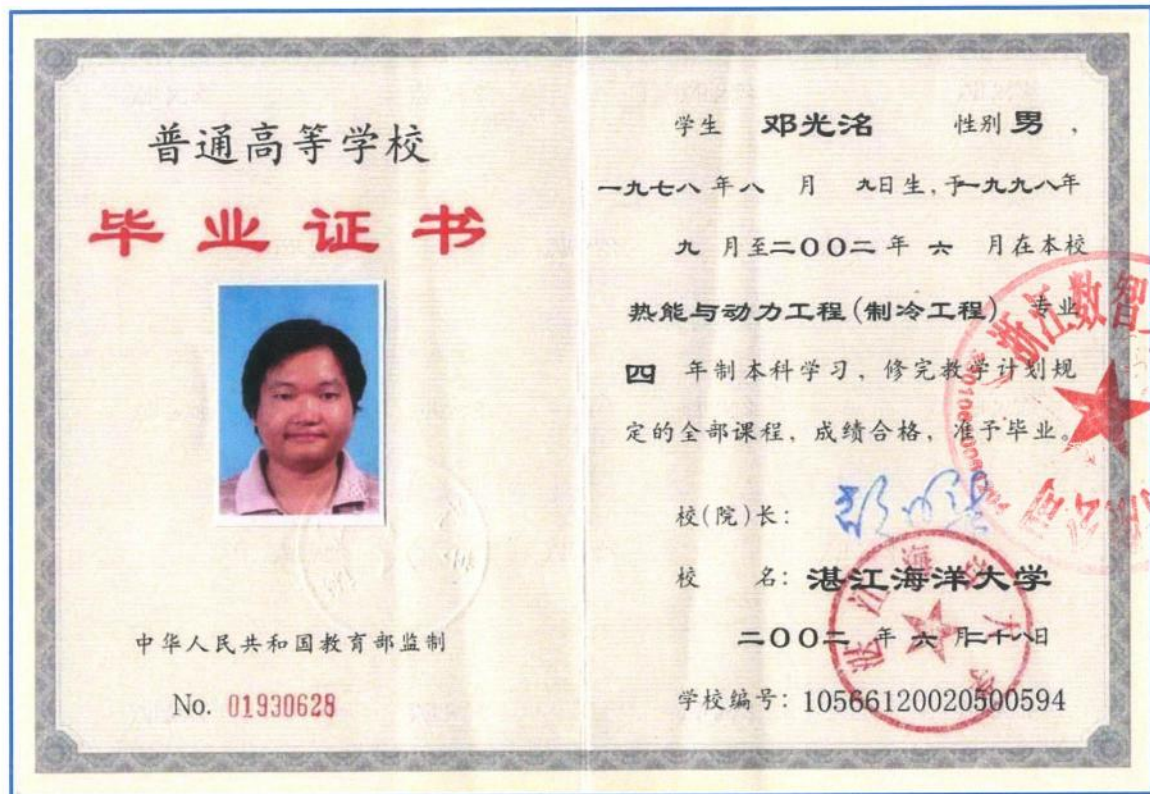 普通高等学校
毕业证书
中华人民共和国教育部监制
No. 01930628
学生 邓光洺 性别 男，
一九七八年八 月 九日生，于一九九八年
九 月至二〇〇二年 六 月在本校
热能与动力工程(制冷工程) 专业
四 年制本科学习，修完教学计划规
定的全部课程，成绩合格，准予毕业。
浙江数智
校(院)长：
校 名：湛江海洋大学
湛江海洋大学
二〇〇二 年 六 月二十八日
学校编号：10566120020500594